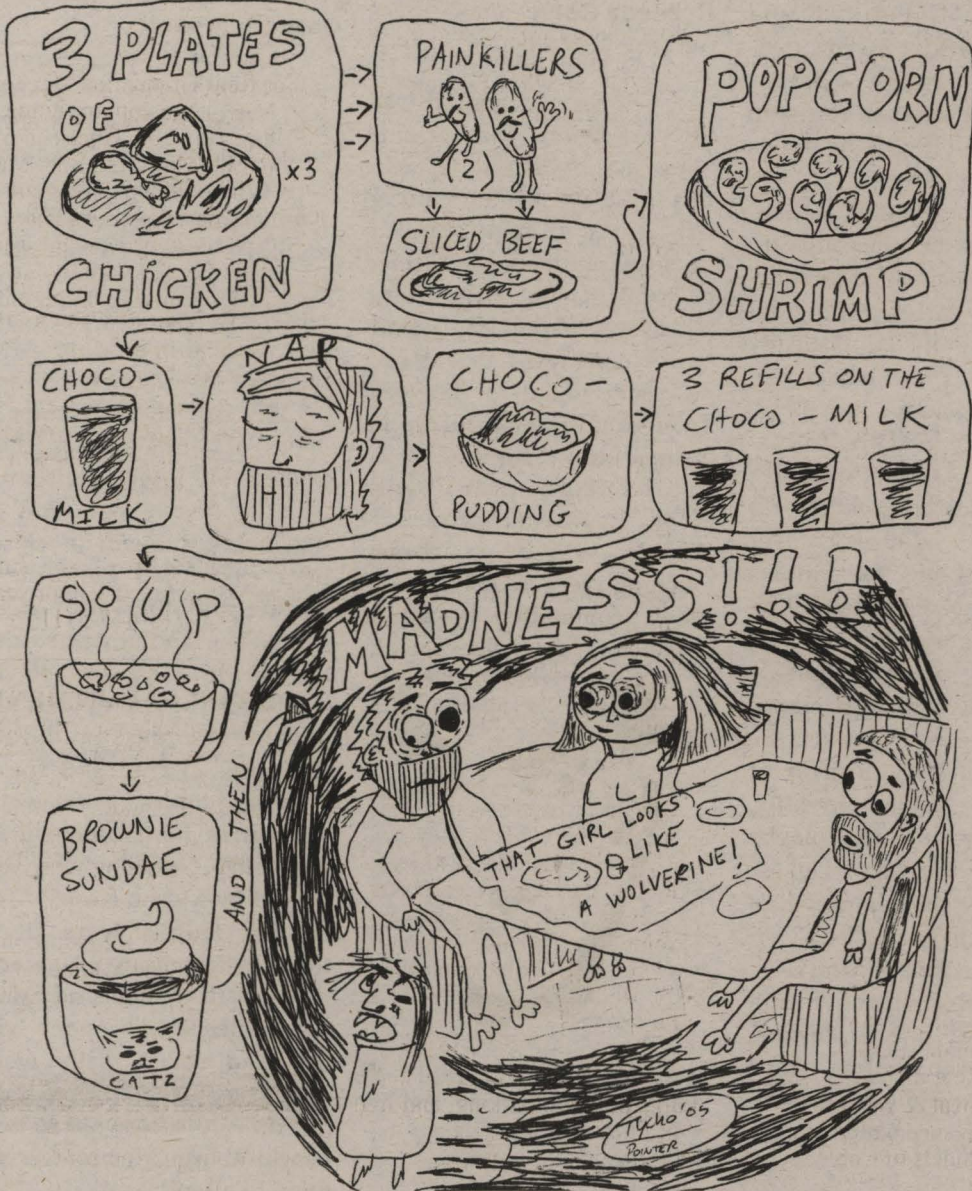 3 PLATES
OF
x3
CHICKEN
PAINKILLERS
2
SLICED BEEF
POPCORN
SHRIMP
CHOCO-
MILK
NAP
CHOCO-
PUDDING
3 REFILLS ON THE
CHOCO-MILK
SOUP
BROWNIE
SUNDAE
CATZ
AND THEN
MADNESS!!!
THAT GIRL LOOKS
LIKE
A WOLVERINE!
Tycho '05
POINTER